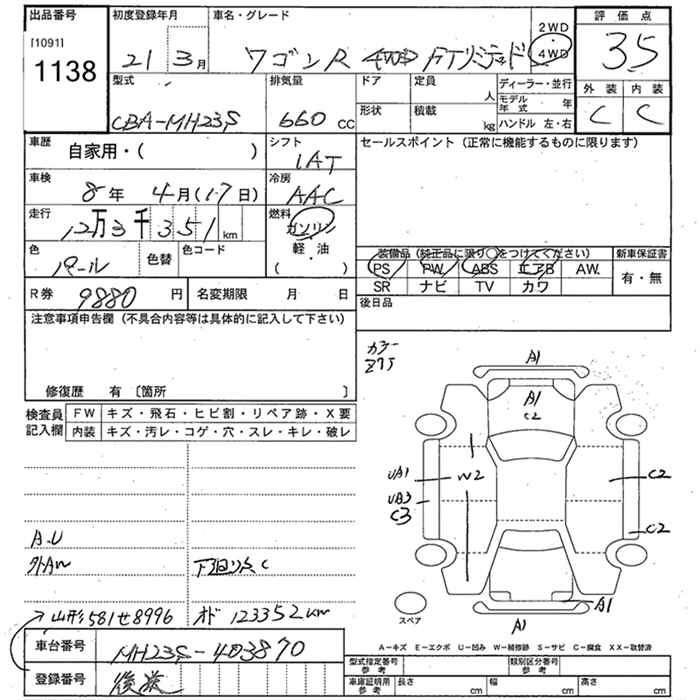 出品番号 初度登録年月 車名・グレード 2WD 評価点
[1091] 1138 21年3月 ワゴンR 4WD FTリミテッド 4WD 3.5
型式 排気量 ドア 定員 人 ディーラー・並行 外装 内装
CBA-MH23S 660cc 形状 積載 kg モデル年式 年 C C
ハンドル 左・右
車歴 自家用・( ) シフト IAT セールスポイント(正常に機能するものに限ります)
車検 8年4月(17日) 冷房 AAC
走行 12万3千351km 燃料 ガソリン
軽・油
( )
色 パール 色替 色コード 装備品(純正品に限り○をつけてください) 新車保証書
PS PW ABS エアB AW 有・無
SR ナビ TV カワ
R券 9880円 名変期限 月 日 後日品
注意事項申告欄(不具合内容等は具体的に記入して下さい)
カラー
Z7J
修復歴 有〔箇所 〕
検査員記入欄 FW キズ・飛石・ヒビ割・リペア跡・X要
内装 キズ・汚レ・コゲ・穴・スレ・キレ・破レ
A1
A1
C2
UA1 W2 C2
UA3
C3 C2
A.U
外AW 下回りS,C
A1
A1
スペア
→山形581せ8996 オド 123352km
A-キズ E-エクボ U-凹み W-補修跡 S-サビ C-腐食 XX-取替済
車台番号 MH23S-403870
型式指定番号 参考 類別区分番号 参考
登録番号 後送
車庫証明用 参考 長さ cm 幅 cm 高さ cm